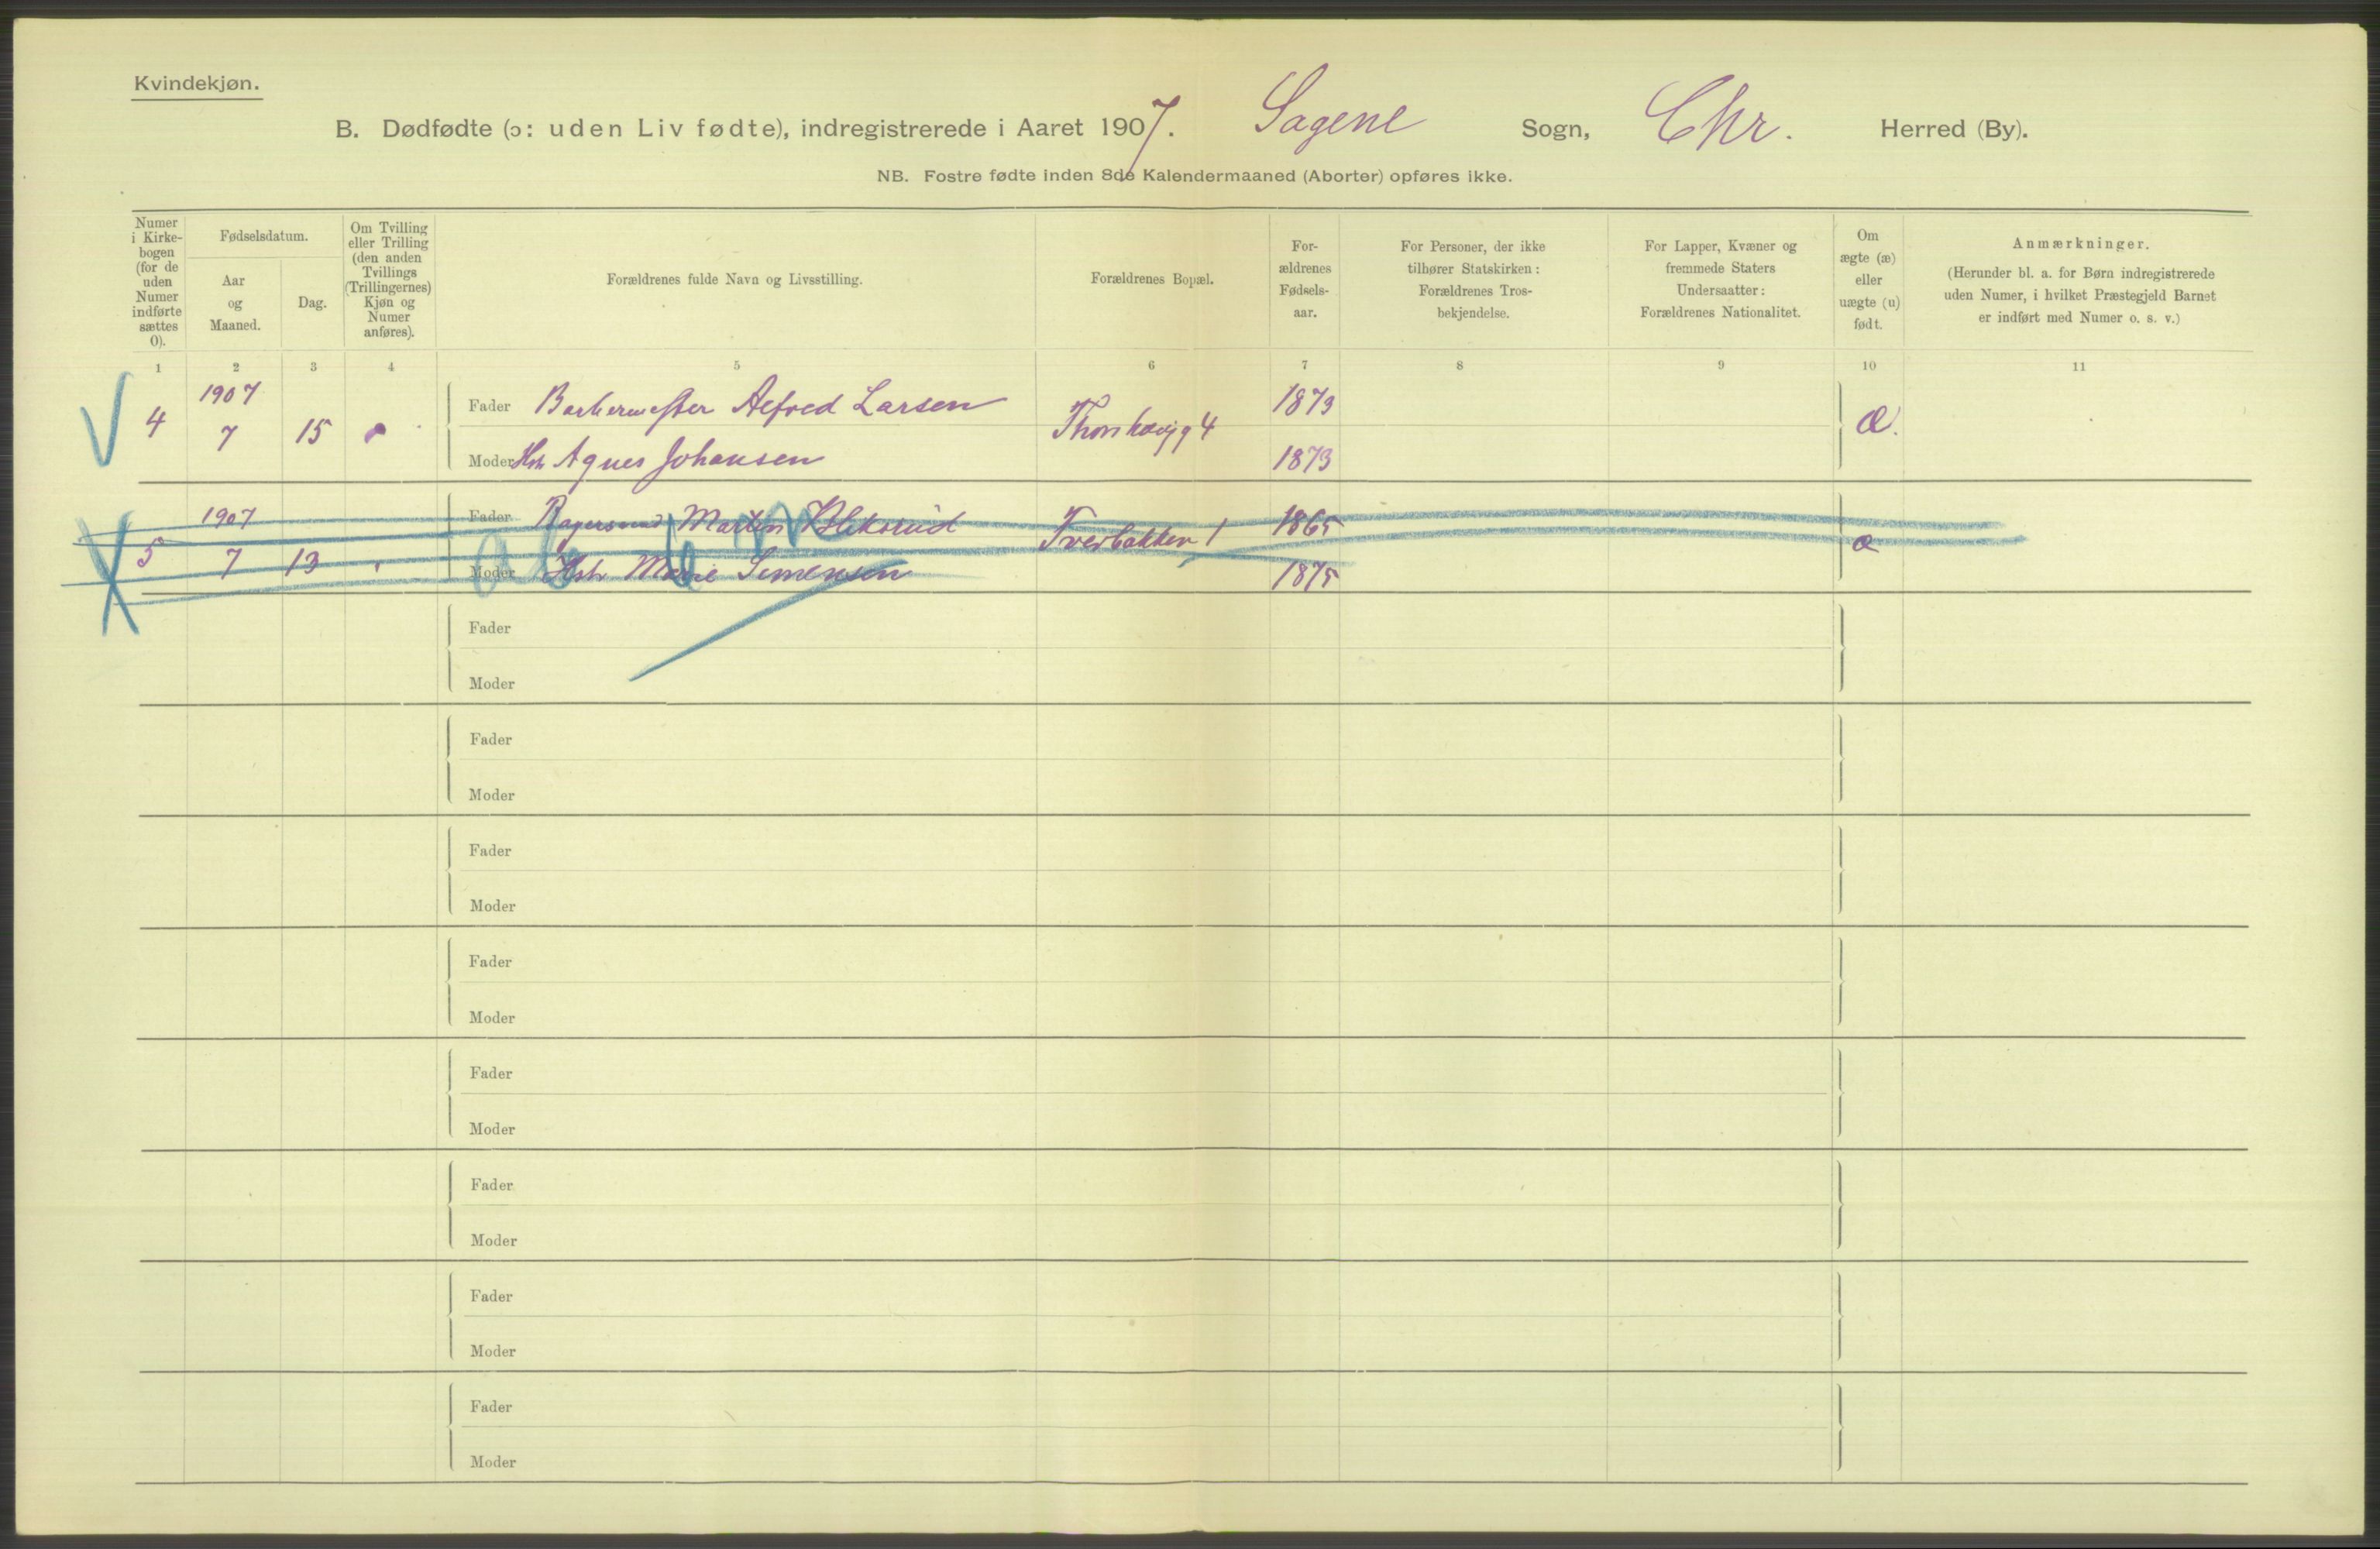 Kvindekjøn.
B. Dødfødte (ɔ: uden Liv fødte), indregistrerede i Aaret 1907. Sagene Sogn, Chr. Herred (By).
NB. Fostre fødte inden 8de Kalendermaaned (Aborter) opføres ikke.
Numer
i Kirke-
bogen
(for de
uden
Numer
indførte
sættes
0).
Fødselsdatum.
Aar
og
Maaned.
Dag.
Om Tvilling
eller Trilling
(den anden
Tvillings
(Trillingernes)
Kjøn og
Numer
anføres).
Forældrenes fulde Navn og Livsstilling.
Forældrenes Bopæl.
For-
ældrenes
Fødsels-
aar.
For Personer, der ikke
tilhører Statskirken:
Forældrenes Tros-
bekjendelse.
For Lapper, Kvæner og
fremmede Staters
Undersaatter:
Forældrenes Nationalitet.
Om
ægte (æ)
eller
uægte (u)
født.
Anmærkninger.
(Herunder bl. a. for Børn indregistrerede
uden Numer, i hvilket Præstegjeld Barnet
er indført med Numer o. s. v.)
1 2 3 4 5 6 7 8 9 10 11
1907
4 7 15
Fader Barbermester Alfred Larsen 1873
Thorshovg 4 æ.
Moder Hst Agnes Johansen 1873
1907
5 7 13
Fader Martin 1865
Tverbakken 1 æ
Moder Hst Marie Simensen 1875
Fader
Moder
Fader
Moder
Fader
Moder
Fader
Moder
Fader
Moder
Fader
Moder
Fader
Moder
Fader
Moder